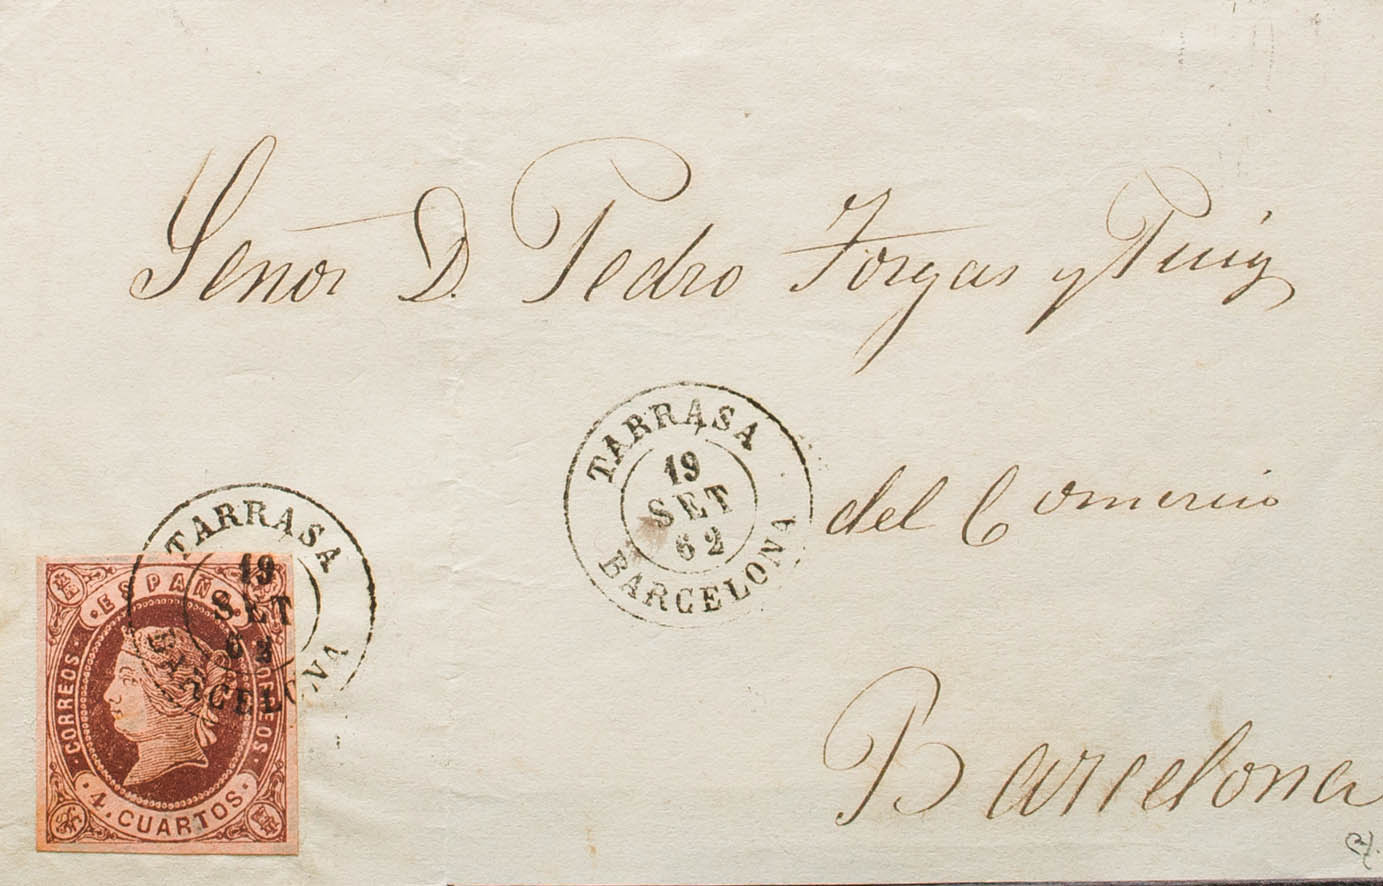 Señor D. Pedro Forgas y Puig
TARRASA
19
SET
62
BARCELONA
del Comercio
TARRASA
19
SET
62
BARCELONA
· ESPAÑA ·
CORREOS
CORREOS
· 4. CUARTOS ·
Barcelona